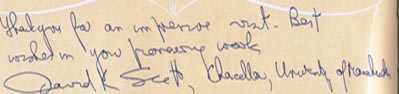 Thank you for an impressive visit. Best
wishes in your pioneering work
David K Scott, Chancellor, University of Massachusetts